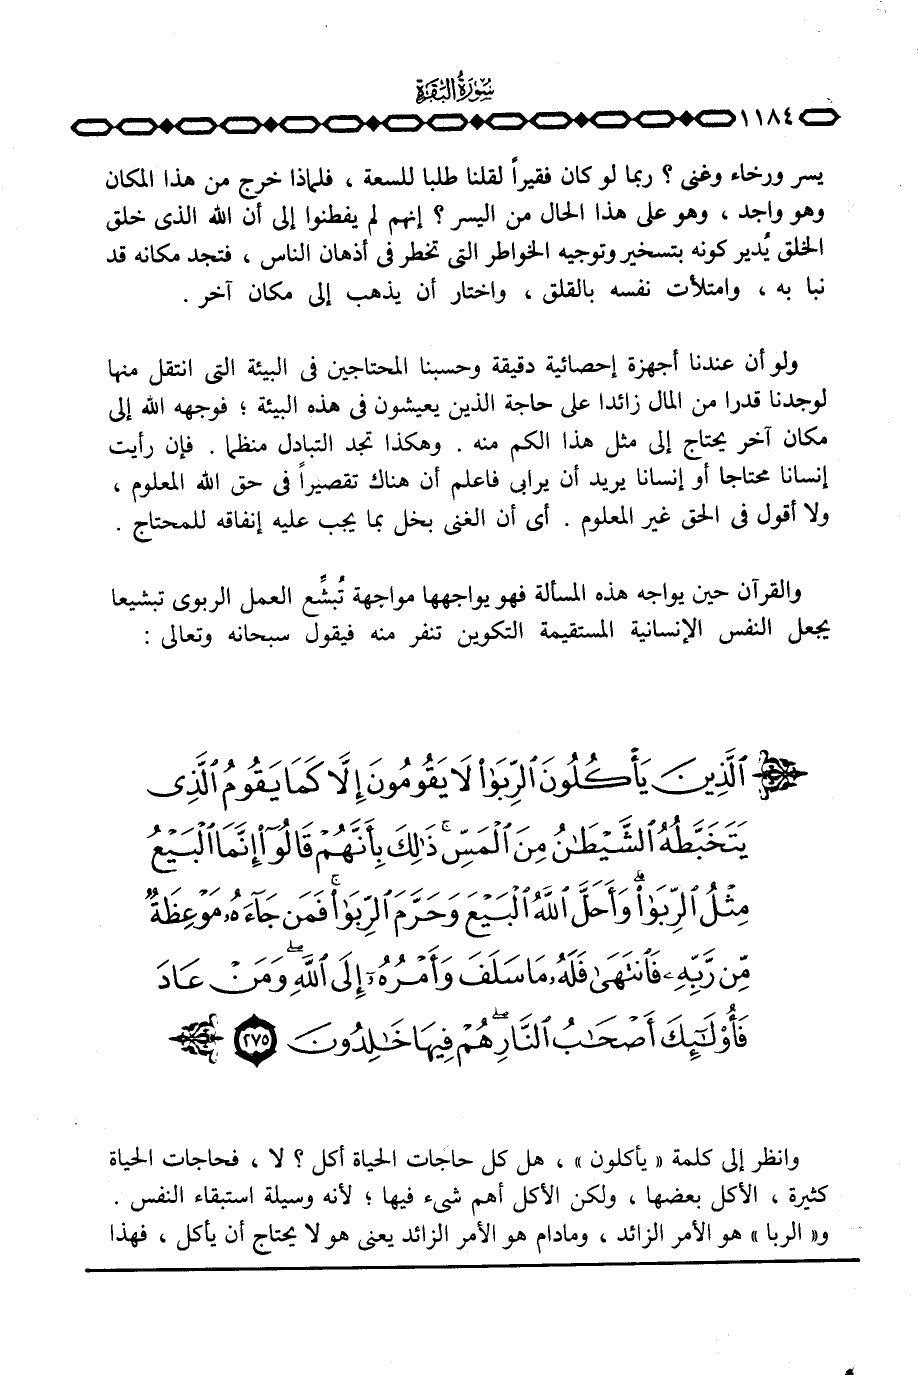 سورة البقرة
١١٨٤
يسر ورخاء وغنى ؟ ربما لو كان فقيراً لقلنا طلبا للسعة ، فلماذا خرج من هذا المكان
وهو واجد ، وهو على هذا الحال من اليسر ؟ إنهم لم يفطنوا إلى أن الله الذى خلق
الخلق يُدير كونه بتسخير وتوجيه الخواطر التى تخطر فى أذهان الناس ، فتجد مكانه قد
نبا به ، وامتلأت نفسه بالقلق ، واختار أن يذهب إلى مكان آخر .
ولو أن عندنا أجهزة إحصائية دقيقة وحسبنا المحتاجين فى البيئة التى انتقل منها
لوجدنا قدرا من المال زائدا على حاجة الذين يعيشون فى هذه البيئة ؛ فوجهه الله إلى
مكان آخر يحتاج إلى مثل هذا الكم منه . وهكذا تجد التبادل منظما . فإن رأيت
إنسانا محتاجا أو إنسانا يريد أن يرابى فاعلم أن هناك تقصيراً فى حق الله المعلوم ،
ولا أقول فى الحق غير المعلوم . أى أن الغنى بخل بما يجب عليه إنفاقه للمحتاج .
والقرآن حين يواجه هذه المسألة فهو يواجهها مواجهة تُبشِّع العمل الربوى تبشيعا
يجعل النفس الإنسانية المستقيمة التكوين تنفر منه فيقول سبحانه وتعالى :
ٱلَّذِينَ يَأْكُلُونَ ٱلرِّبَوٰا۟ لَا يَقُومُونَ إِلَّا كَمَا يَقُومُ ٱلَّذِى
يَتَخَبَّطُهُ ٱلشَّيْطَٰنُ مِنَ ٱلْمَسِّ ۚ ذَٰلِكَ بِأَنَّهُمْ قَالُوٓا۟ إِنَّمَا ٱلْبَيْعُ
مِثْلُ ٱلرِّبَوٰا۟ ۗ وَأَحَلَّ ٱللَّهُ ٱلْبَيْعَ وَحَرَّمَ ٱلرِّبَوٰا۟ ۚ فَمَن جَآءَهُۥ مَوْعِظَةٌ
مِّن رَّبِّهِۦ فَٱنتَهَىٰ فَلَهُۥ مَا سَلَفَ وَأَمْرُهُۥٓ إِلَى ٱللَّهِ ۖ وَمَنْ عَادَ
فَأُو۟لَٰٓئِكَ أَصْحَٰبُ ٱلنَّارِ ۖ هُمْ فِيهَا خَٰلِدُونَ ٢٧٥
وانظر إلى كلمة « يأكلون » ، هل كل حاجات الحياة أكل ؟ لا ، فحاجات الحياة
كثيرة ، الأكل بعضها ، ولكن الأكل أهم شىء فيها ؛ لأنه وسيلة استبقاء النفس .
و« الربا » هو الأمر الزائد ، ومادام هو الأمر الزائد يعنى هو لا يحتاج أن يأكل ، فهذا